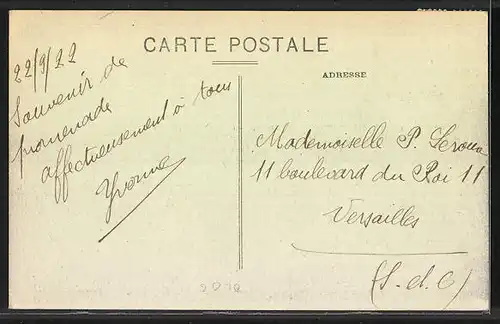 CARTE POSTALE
ADRESSE
22/9/22
Souvenir de
promenade
affectueusement à tous
Yvonne
Mademoiselle P.
11 boulevard du Roi 11
Versailles
(S. d. O)